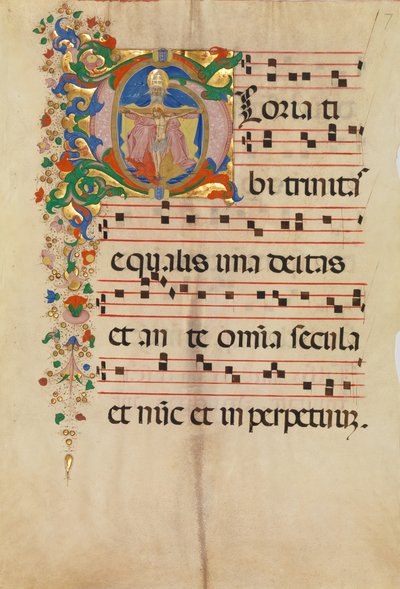 Gloria ti
bi trinitas
equalis una deitas
et an te om̄ia secula
et nūc et in perpetuum.